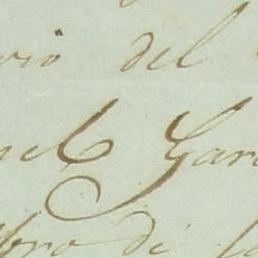 rio del
uel Gar
bro di